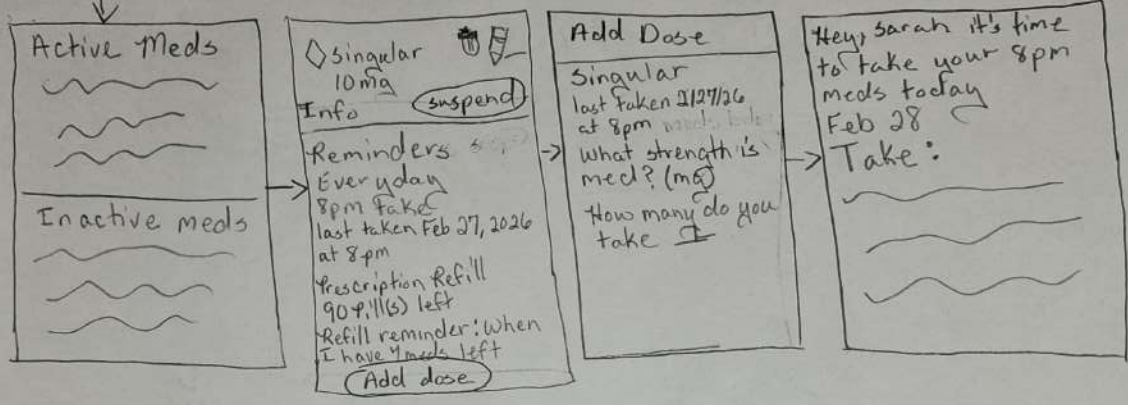 Active Meds
Inactive meds
Singular
10mg
Info
suspend
Reminders
Everyday
8pm take
last taken Feb 27, 2026
at 8pm
Prescription Refill
90 pill(s) left
Refill reminder: When
I have 4 meds left
Add dose
Add Dose
Singular
last taken 2/27/26
at 8pm
What strength is
med? (mg)
How many do you
take I
Hey, Sarah it's time
to take your 8pm
meds today
Feb 28
Take: